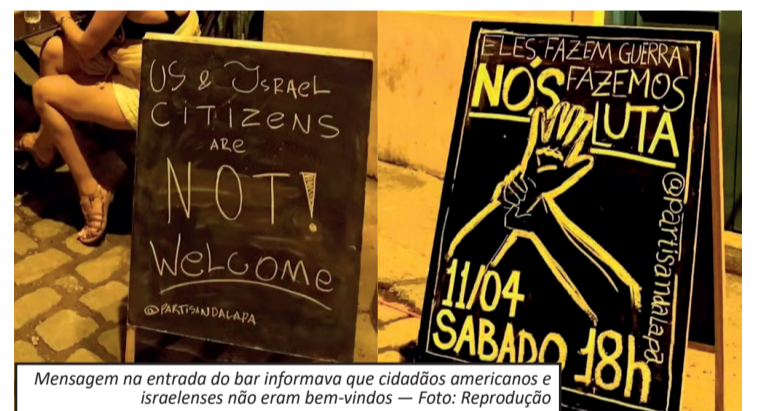 US & ISRAEL
CITIZENS
ARE
NOT!
WELCOME
@PARTISANDALAPA
ELES FAZEM GUERRA
NÓS FAZEMOS
LUTA
@partisandalapa
11/04
SABADO 18h
Mensagem na entrada do bar informava que cidadãos americanos e
israelenses não eram bem-vindos — Foto: Reprodução